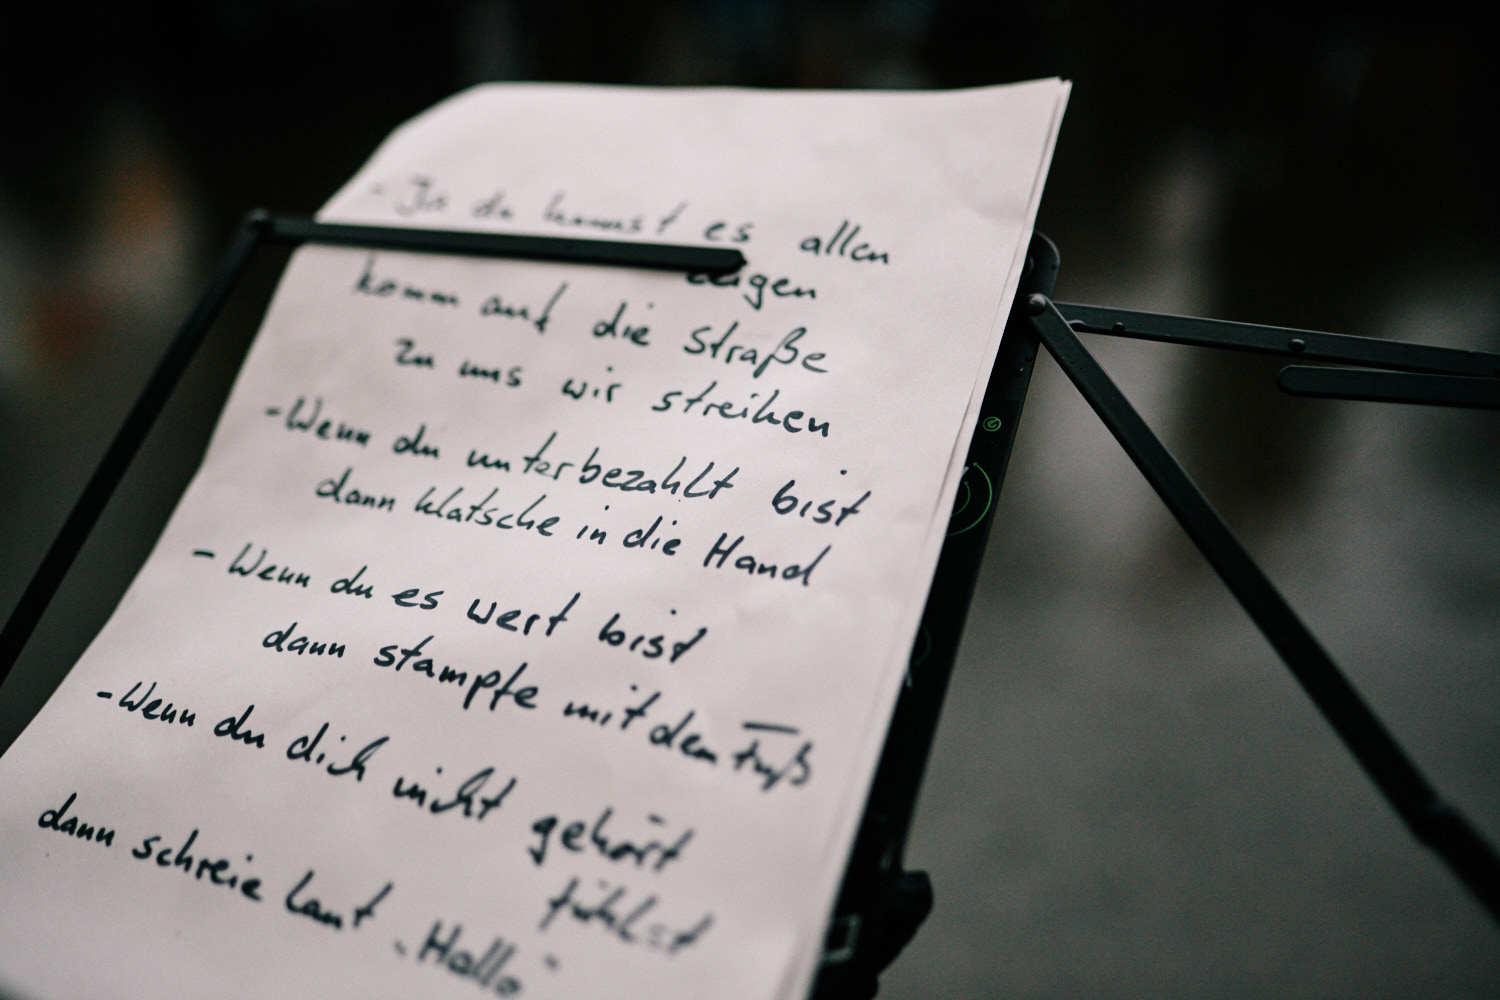 - Ja du kannst es allen
zeigen
komm auf die Straße
zu uns wir streiken
- Wenn du unterbezahlt bist
dann klatsche in die Hand
- Wenn du es wert bist
dann stampfe mit dem Fuß
- Wenn du dich nicht gehört
fühlst
dann schreie laut „Hallo"